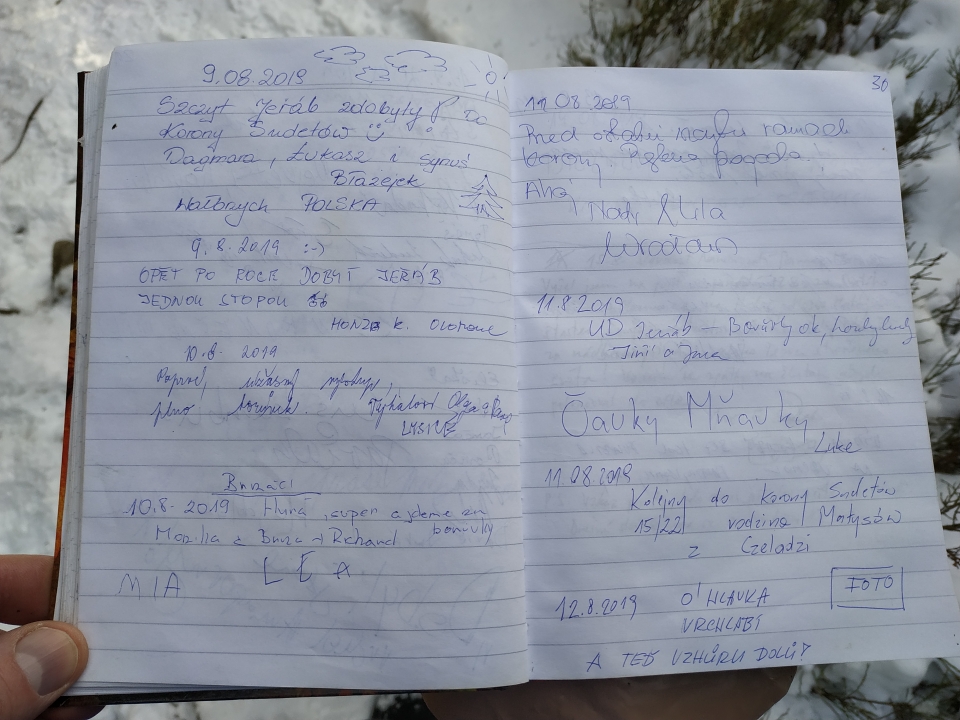 9.08.2019
Szczyt Jeřáb zdobyty! Do
Korony Sudetów
Dagmara, Łukasz i synuś
Błażejek
Wałbrzych POLSKA
9.8.2019 :-)
OPĚT PO ROCE DOBYT JEŘÁB
JEDNOU STOPOU
HONZA K. Olomouc
10.8. 2019
Poprvé, úžasný výstup,
plno borůvek. Týkalovi Olga a
LYSICE
Buráci
10.8.2019 Hurá, super a jdeme na
borůvky
a Richard
L E A
MIA
30
11.08.2019
Przed ostatni
korony. Piękna pogoda!
Ahoj
& Lila
Wrocław
11.8.2019
Jeřáb - Borůvky ok, houby
Jiří a Jana
Čavky Mňavky
Luke
11.08.2019
Kolejny do korony Sudetów
15/22 rodzina Matysów
z Czeladzi
12.8.2019 O'HLAVKA
VRCHLABÍ
FOTO
A TEĎ VZHŮRU DOLŮ!